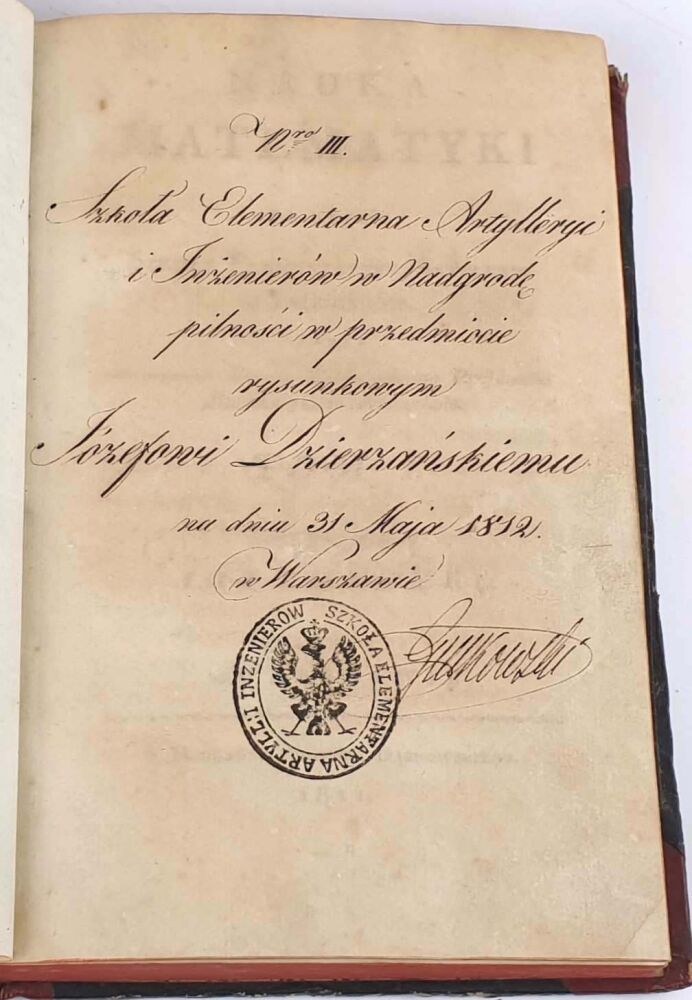 Nro III.
Szkoła Elementarna Artylleryi
i Inżenierów w Nadgrodę
pilnośći w przedmiocie
rysunkowym
Józefowi Dzierzańskiemu
na dniu 31 Maja 1812.
w Warszawie
SZKOŁA ELEMENTARNA ARTYLL: I INZENIEROW